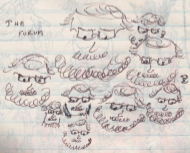 THE
FORUM